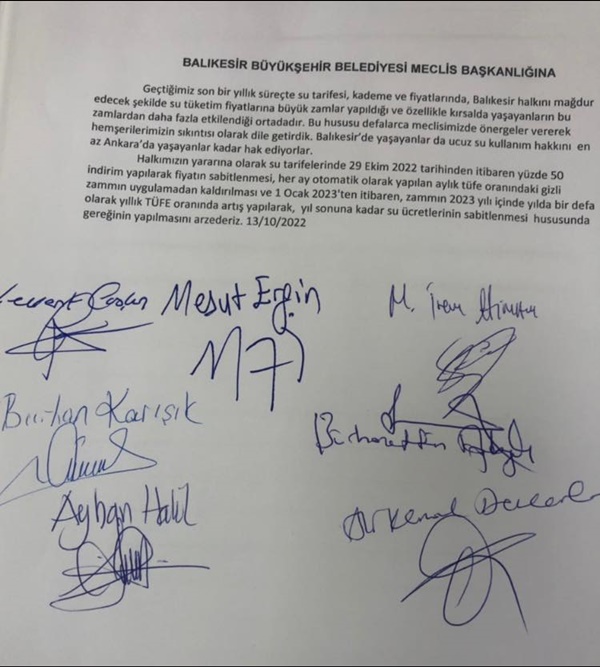 BALIKESİR BÜYÜKŞEHİR BELEDİYESİ MECLİS BAŞKANLIĞINA
Geçtiğimiz son bir yıllık süreçte su tarifesi, kademe ve fiyatlarında, Balıkesir halkını mağdur
edecek şekilde su tüketim fiyatlarına büyük zamlar yapıldığı ve özellikle kırsalda yaşayanların bu
zamlardan daha fazla etkilendiği ortadadır. Bu hususu defalarca meclisimizde önergeler vererek
hemşerilerimizin sıkıntısı olarak dile getirdik. Balıkesir'de yaşayanlar da ucuz su kullanım hakkını en
az Ankara'da yaşayanlar kadar hak ediyorlar.
Halkımızın yararına olarak su tarifelerinde 29 Ekim 2022 tarihinden itibaren yüzde 50
indirim yapılarak fiyatın sabitlenmesi, her ay otomatik olarak yapılan aylık tüfe oranındaki gizli
zammın uygulamadan kaldırılması ve 1 Ocak 2023'ten itibaren, zammın 2023 yılı içinde yılda bir defa
olarak yıllık TÜFE oranında artış yapılarak, yıl sonuna kadar su ücretlerinin sabitlenmesi hususunda
gereğinin yapılmasını arzederiz. 13/10/2022
Mesut Ergin
M. İrem
Burhan Karışık
Ayhan Halil